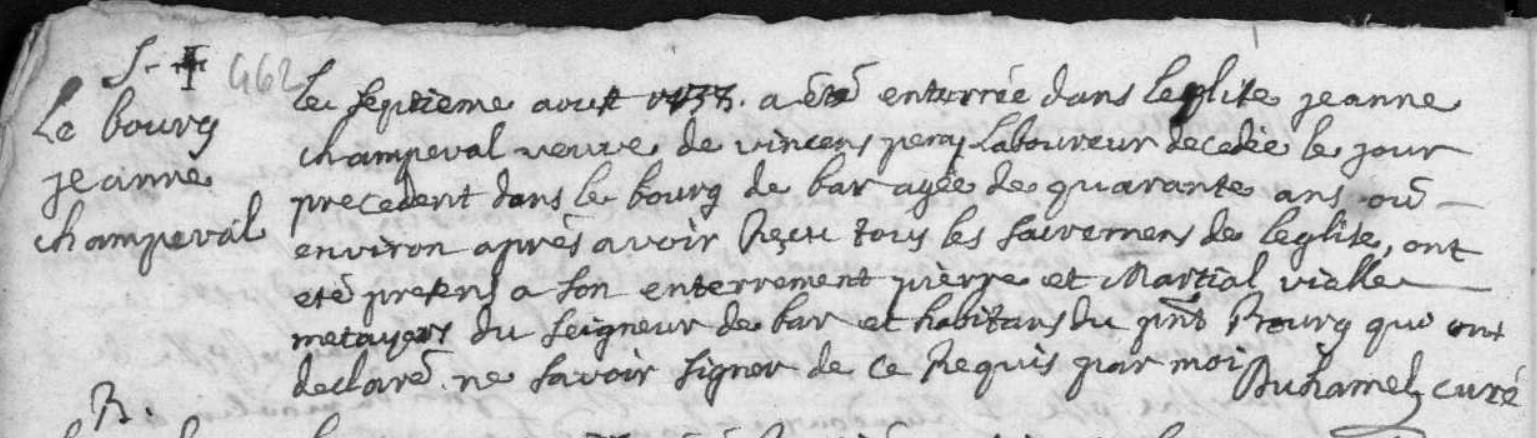 S. ✝ 462
Le bourg
jeanne
champeval
Le septieme aout 1737. a été enterrée dans leglise jeanne
champeval veuve de vincens peroy Laboureur decedée le jour
precedent dans le bourg de bar agée de quarante ans ou
environ aprés avoir Reçu tous les sacremens de leglise, ont
eté presens a son enterrement pierre et Martial vialle
metayers du seigneur de bar et habitans du pnt Bourg qui ont
declaré ne savoir signer de ce Requis par moi Duhamel curé
B.